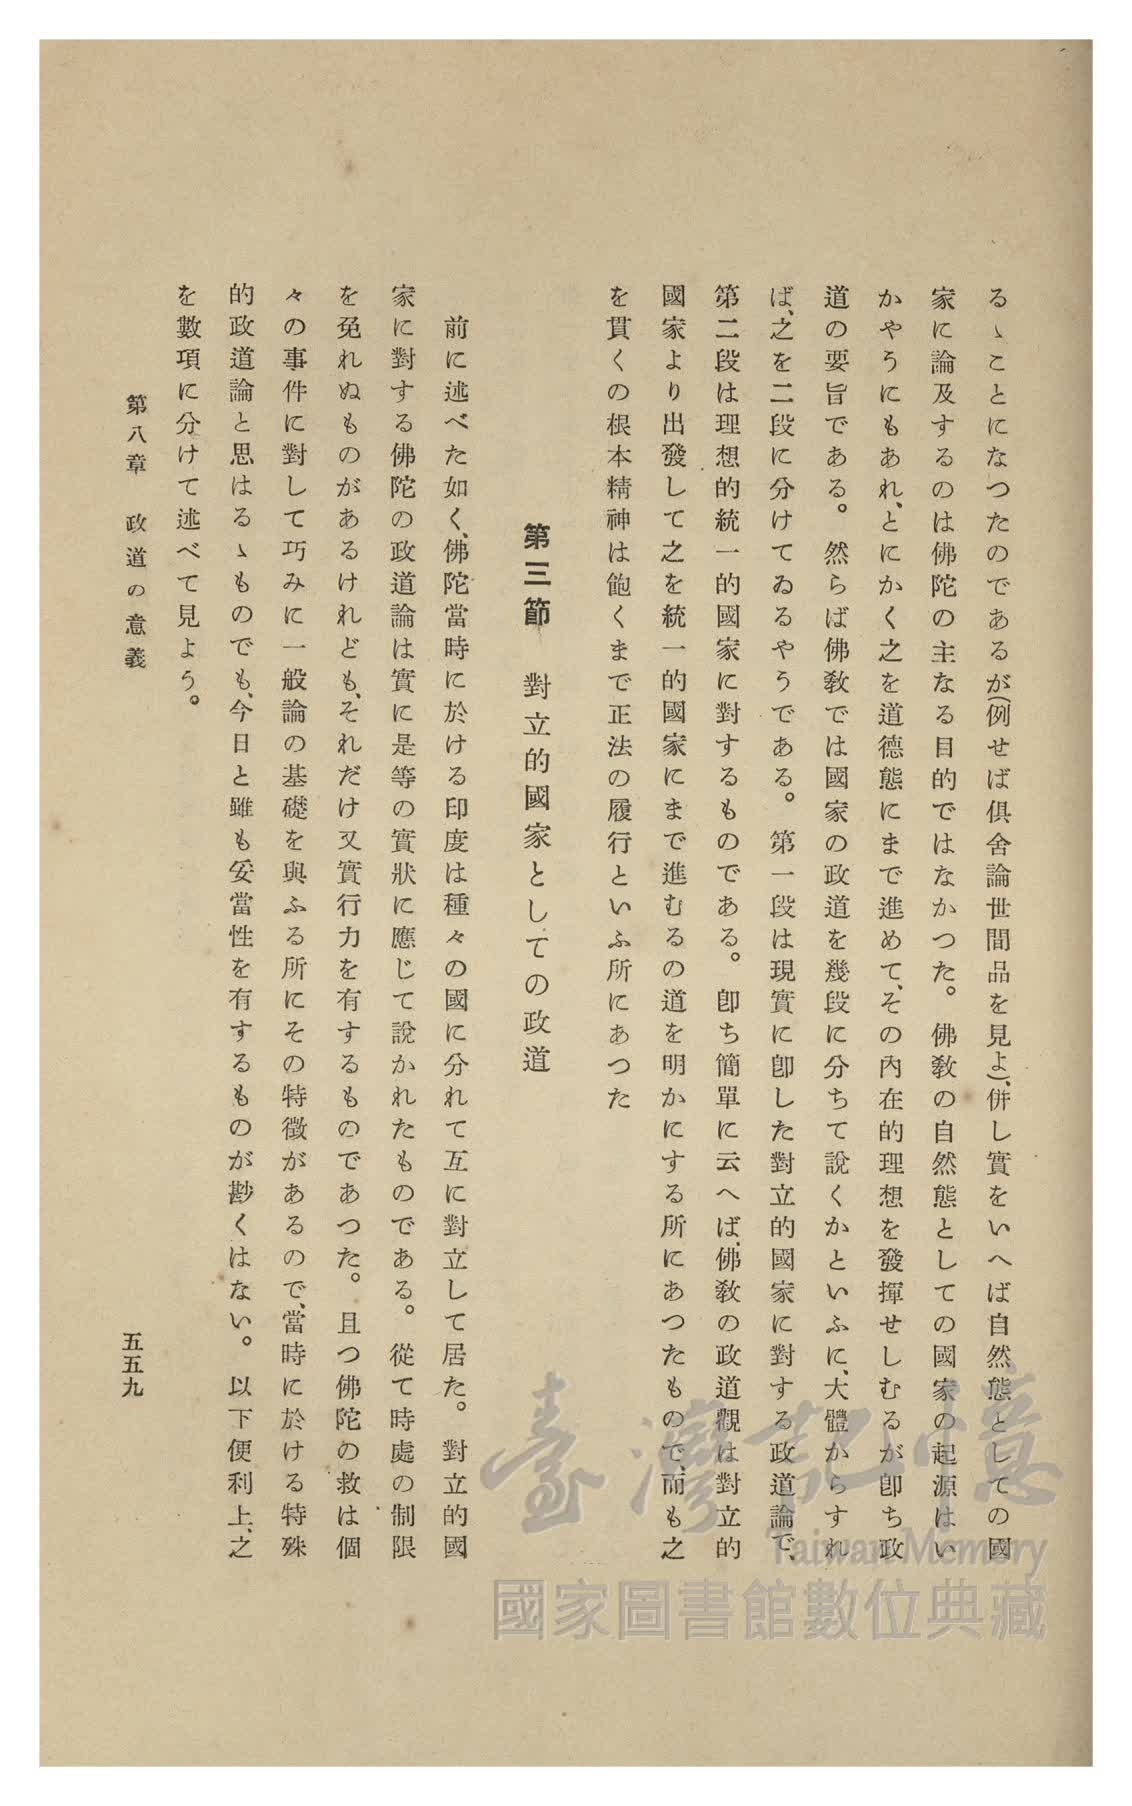 るゝことになつたのであるが(例せば倶舍論世間品を見よ)、併し實をいへば自然態としての國
家に論及するのは佛陀の主なる目的ではなかつた。佛敎の自然態としての國家の起源はい
かやうにもあれ、とにかく之を道德態にまで進めて、その內在的理想を發揮せしむるが卽ち政
道の要旨である。然らば佛敎では國家の政道を幾段に分ちて說くかといふに、大體からすれ
ば、之を二段に分けてゐるやうである。第一段は現實に卽した對立的國家に對する政道論で、
第二段は理想的統一的國家に對するものである。卽ち簡單に云へば、佛敎の政道觀は對立的
國家より出發して之を統一的國家にまで進むるの道を明かにする所にあつたもので、而も之
を貫くの根本精神は飽くまで正法の履行といふ所にあつた
第三節 對立的國家としての政道
前に述べた如く、佛陀當時に於ける印度は種々の國に分れて互に對立して居た。對立的國
家に對する佛陀の政道論は實に是等の實狀に應じて說かれたものである。從て時處の制限
を免れぬものがあるけれども、それだけ又實行力を有するものであつた。且つ佛陀の救は個
々の事件に對して巧みに一般論の基礎を與ふる所にその特徵があるので、當時に於ける特殊
的政道論と思はるゝものでも、今日と雖も妥當性を有するものが尠くはない。以下便利上、之
を數項に分けて述べて見よう。
第八章 政道の意義
五五九
臺灣記憶
Taiwan Memory
國家圖書館數位典藏